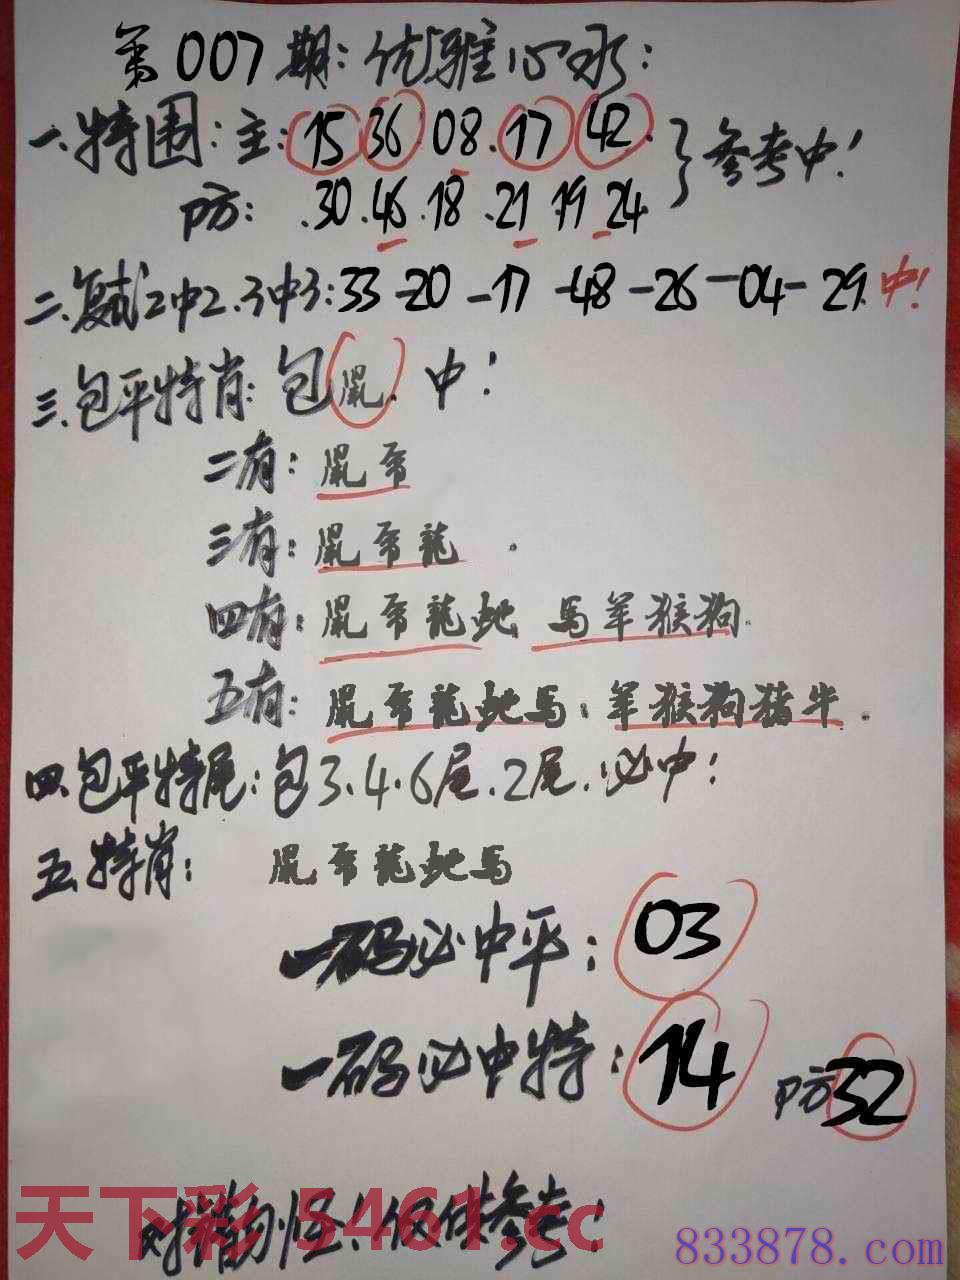 第007期:优雅心水:
一.特围:主:15 36 08.17 42.}参考中!
防: .30.46.18.21 19 24
二.复式2中2.3中3:33-20-17-48-26-04-29.中!
三.包平特肖:包鼠.中!
二有:鼠虎
三有:鼠虎龍.
四有:鼠虎龍蛇 馬羊猴狗.
五有:鼠虎龍蛇馬:羊猴狗猪牛.
四.包平特尾:包3.4.6尾.2尾.必中!
五.特肖: 鼠虎龍蛇馬
一码必中平:03
一码必中特:14 防32
天下彩 5461.cc
错勿怪!仅供参考!
833878.com